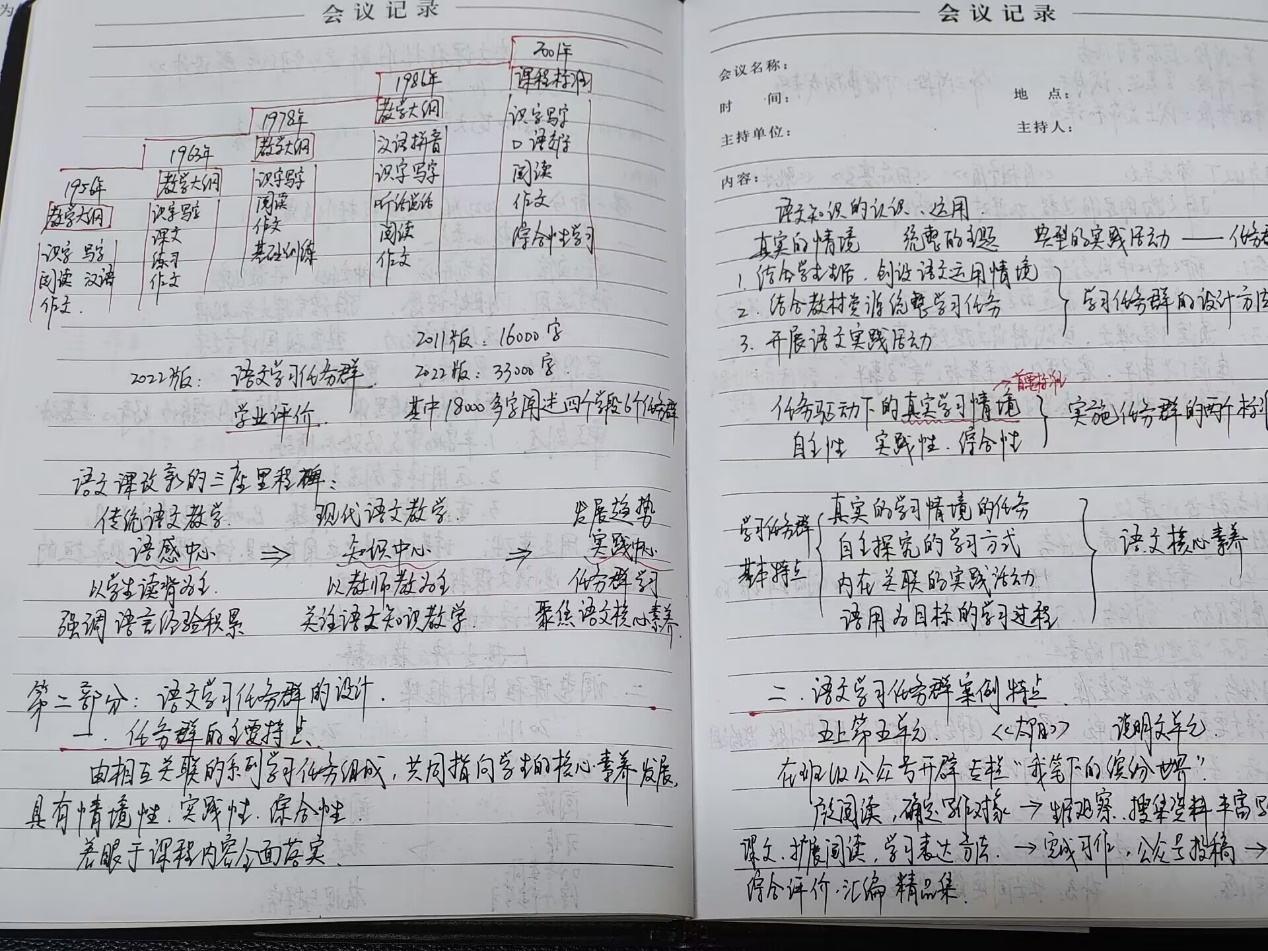 为
会议记录
2001年
课程标准
识字写字
口语交际
阅读
作文
综合性学习
1986年
教学大纲
汉语拼音
识字写字
听话说话
阅读
作文
1978年
教学大纲
识字写字
阅读
作文
基础训练
1963年
教学大纲
识字写字
课文
练习
作文
1956年
教学大纲
识字 写字
阅读 汉语
作文
2011版：16000字
2022版：语文学习任务群 2022版：33000字
学业评价 其中18000多字阐述四个学段6个任务群
语文课改革的三座里程碑：
传统语文教学 现代语文教学 发展趋势
语感中心 ⇒ 知识中心 ⇒ 实践中心
以学生读背为主 以教师教为主 任务群学习
强调语言经验积累 关注语文知识教学 聚焦语文核心素养
第二部分：语文学习任务群的设计
一、任务群的主要特点
由相互关联的系列学习任务组成，共同指向学生的核心素养发展，
具有情境性、实践性、综合性
着眼于课程内容全面落实
会议记录
会议名称：
时 间： 地 点：
主持单位： 主持人：
内容：
语文知识的认识、运用
真实的情境 统整的主题 典型的实践活动——任务群
1. 结合学生生活，创设语文运用情境
2. 结合教材资源统整学习任务 学习任务群的设计方法
3. 开展语文实践活动
首要标准
任务驱动下的真实学习情境 实施任务群的两个标准
自主性 实践性 综合性
学习任务群
基本特点
真实的学习情境的任务
自主探究的学习方式
内在关联的实践活动
语用为目标的学习过程
语文核心素养
二、语文学习任务群案例特点
五上第五单元 《太阳》 说明文单元
在班级公众号开辟专栏“我笔下的缤纷世界”
阅读，确定写作对象→ 观察、搜集资料丰富
课文，扩展阅读，学习表达方法→完成习作，公众号投稿→
综合评价，汇编精品集